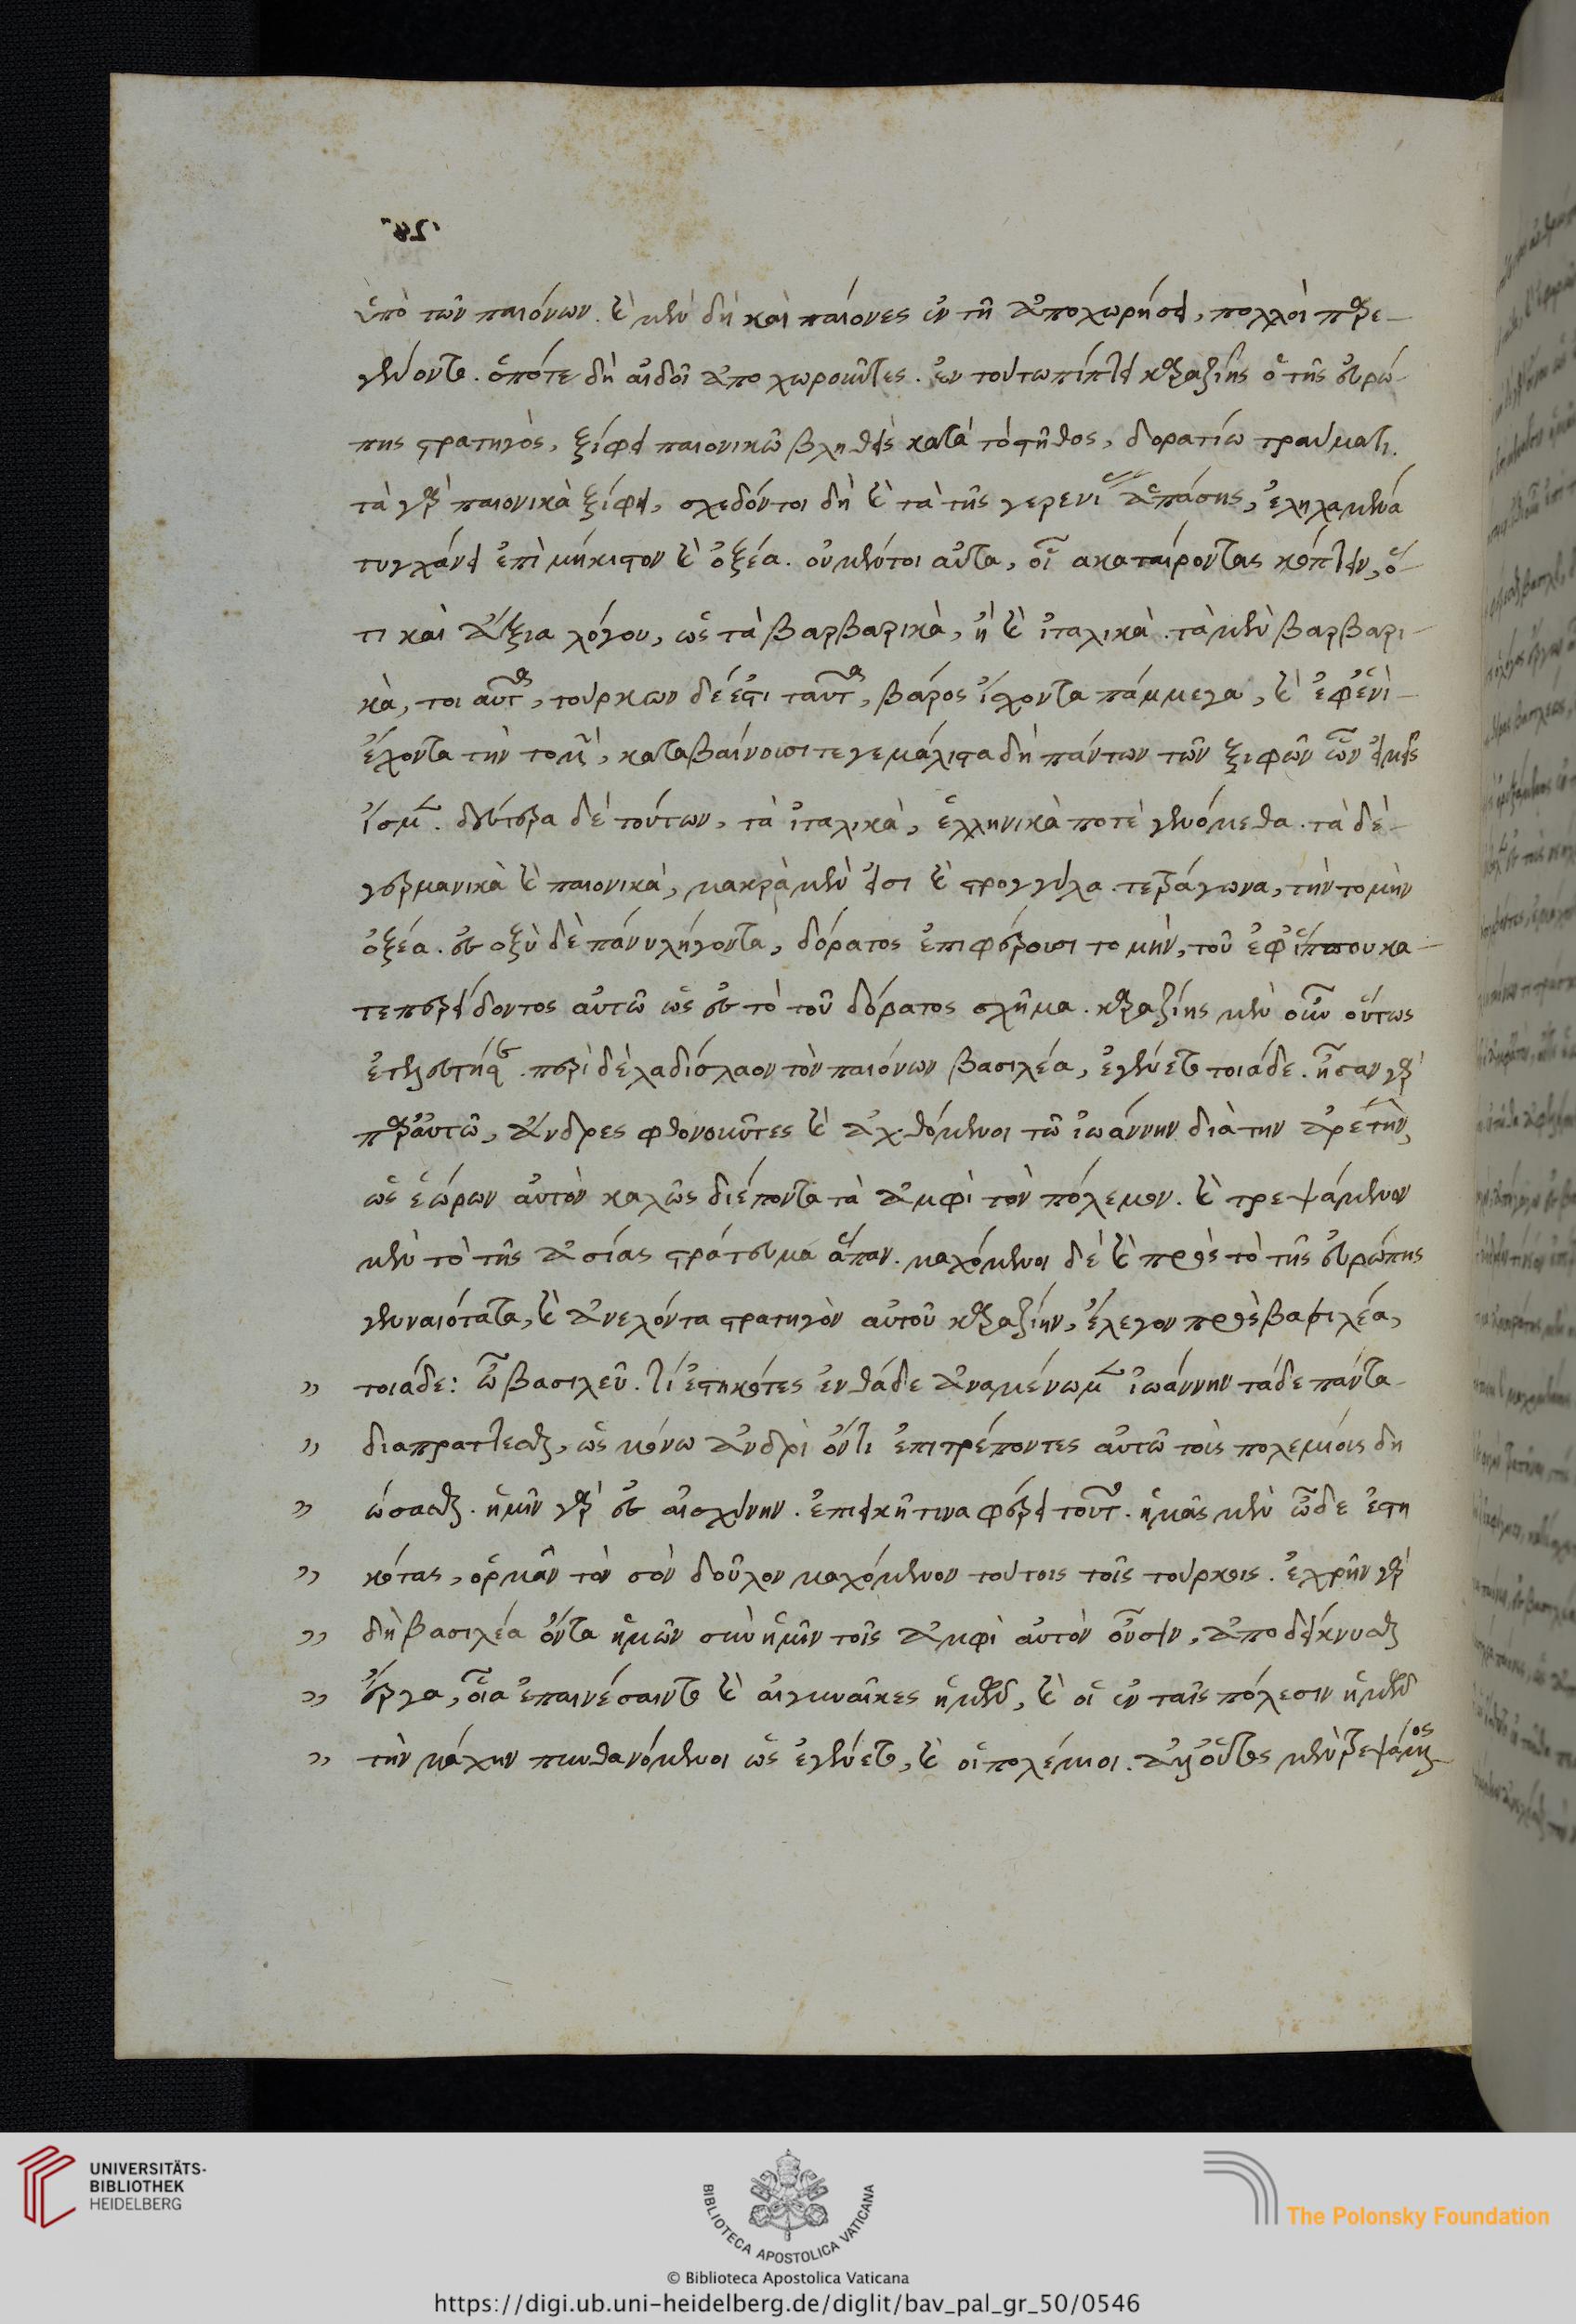 ὑπὸ τῶν παιόνων. καὶ μὲν δὴ καὶ παίονες ἐν τῇ ἀποχωρήσει, πολλοὶ παρε-
γένοντο. ὁπότε δὴ αἰδοῖ ἀποχωροῦντες. ἐν τούτω πίπτει καραζίης ὁ τῆς εὐρώ-
πης στρατηγὸς, ξίφει παιονικῶ βληθεὶς κατὰ τὸ στῆθος, δορατίω τραύματι.
τὰ γὰρ παιονικὰ ξίφη, σχεδόν τοι δὴ καὶ τὰ τῆς γερμανίας ἁπάσης, ἐληλαμένα
τυγχάνει ἐπὶ μήκιστον καὶ ὀξέα. οὐ μέντοι αὐτὰ, οἷα καταίροντας κόπτειν, ὅ-
τι καὶ ἄξια λόγου, ὡς τὰ βαρβαρικὰ, ἢ καὶ ἰταλικὰ. τὰ μὲν βαρβαρι-
κὰ, τοιαῦτα, τούρκων δέ ἐστι ταῦτα, βάρος ἴσχοντα πάμμεγα, καὶ ἐφ' ἑνὶ
ἔχοντα τὴν τομὴν, καταβαίνουσι τε γε μάλιστα δὴ πάντων τῶν ξιφῶν ὧν ἡμεῖς
ἴσμεν. δεύτερα δὲ τούτων, τὰ ἰταλικὰ, ἑλληνικὰ ποτὲ γενόμεθα. τὰ δὲ
γερμανικὰ καὶ παιονικὰ, μακρὰ μὲν εἰσι καὶ στρογγύλα. τετράγωνα, τὴν τομὴν
ὀξέα. εἰς ὀξὺ δὲ πάνυ λήγοντα, δόρατος ἐπιφέρουσι τομὴν, τοῦ ἐφίππου κα-
τεπερείδοντος αὐτῶ ὡς εἰς τὸ τοῦ δόρατος σχῆμα. καραζίης μὲν οὖν οὕτως
ἐτελεύτησε. περὶ δὲ λαδίσλαον τὸν παιόνων βασιλέα, ἐγένετο τοιάδε. ἦσαν γὰρ
παρ' αὐτῶ, ἄνδρες φθονοῦντες καὶ ἀχθόμενοι τῶ ἰωάννην διὰ την ἀρετὴν,
ὡς ἑώρων αὐτὸν καλῶς διέποντα τὰ ἀμφὶ τὸν πόλεμον. καὶ τρεψάμενον
μὲν τὸ τῆς ἀσίας στράτευμα ἅπαν. μαχόμενοι δὲ καὶ πρὸς τὸ τῆς εὐρώπης
γενναιότατα, καὶ ἀνελόντα στρατηγὸν αὐτοῦ καραζίην, ἔλεγον πρὸς βασιλέα,
" τοιάδε: ὦ βασιλεῦ. τί ἑστηκότες ἐνθάδε ἀναμένωμεν ἰωάννην τάδε πάντα
" διαπράττεσθαι, ὡς μόνω ἀνδρὶ ὄντι ἐπιτρέποντες αὐτῶ τοὶς πολεμίοις δη
" ώσασθαι. ἡμῖν γὰρ εἰς αἰσχύνην. ἐπιεικῆ τινα φέρει τοῦτο. ἡμᾶς μὲν ὧδε ἑστη
" κότας, ὁρμᾶν τὸν σὸν δοῦλον μαχόμενον τούτοις τοῖς τούρκοις. ἐχρῆν γὰρ
" δὴ βασιλέα ὄντα ἡμῶν σὺν ἡμῖν τοῖς ἀμφὶ αὐτὸν οὖσιν, ἀποδείκνυσθαι
" ἔργα, οἷα ἐπαινέσαιντο καὶ αἱ γυναῖκες ἡμῶν, καὶ οἱ ἐν ταῖς πόλεσιν ἡμῶν
" τὴν μάχην πυνθανόμενοι ὡς ἐγένετο, καὶ οἱ πολέμιοι. μὲν τρεψάμενος
UNIVERSITÄTS-
BIBLIOTHEK
HEIDELBERG
BIBLIOTECA APOSTOLICA VATICANA
The Polonsky Foundation
© Biblioteca Apostolica Vaticana
https://digi.ub.uni-heidelberg.de/diglit/bav_pal_gr_50/0546